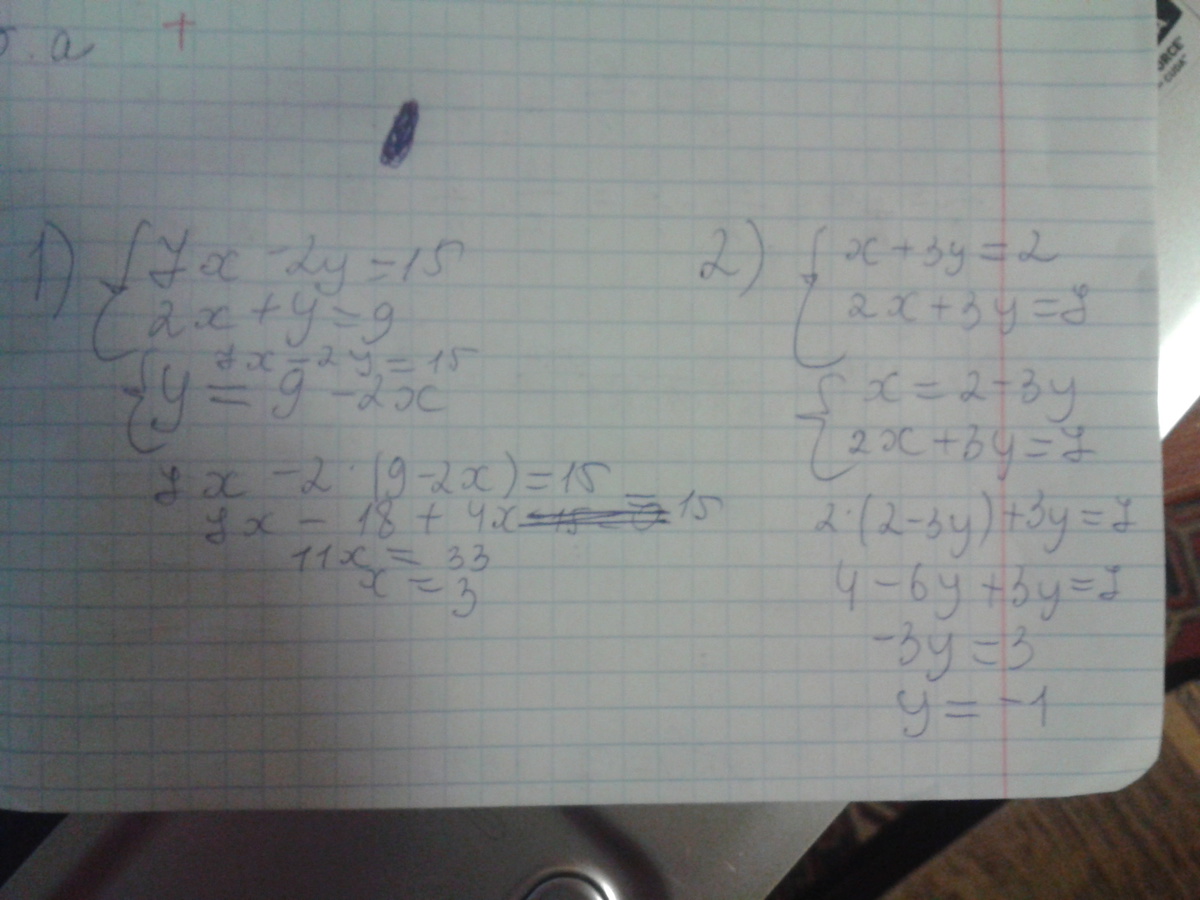 б. а +
1) { 7x - 2y = 15
2x + y = 9
{ 7x - 2y = 15
y = 9 - 2x
7x - 2·(9-2x) = 15
7x - 18 + 4x = 15
11x = 33
x = 3
2) { x + 3y = 2
2x + 3y = 7
{ x = 2 - 3y
2x + 3y = 7
2·(2-3y) + 3y = 7
4 - 6y + 3y = 7
-3y = 3
y = -1
CUDA